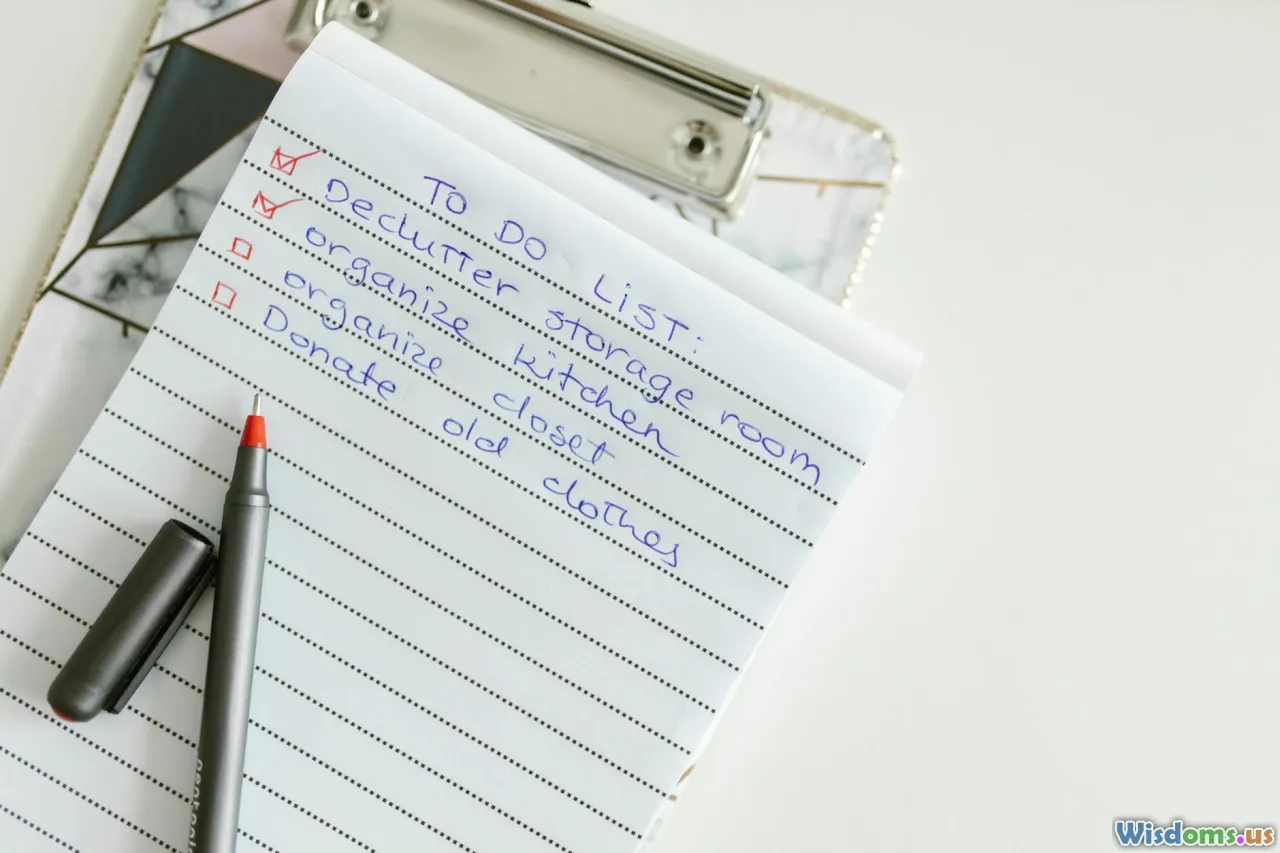 TO DO LIST:
Declutter storage room
organize kitchen
organize closet
Donate old clothes
Wisdoms.us